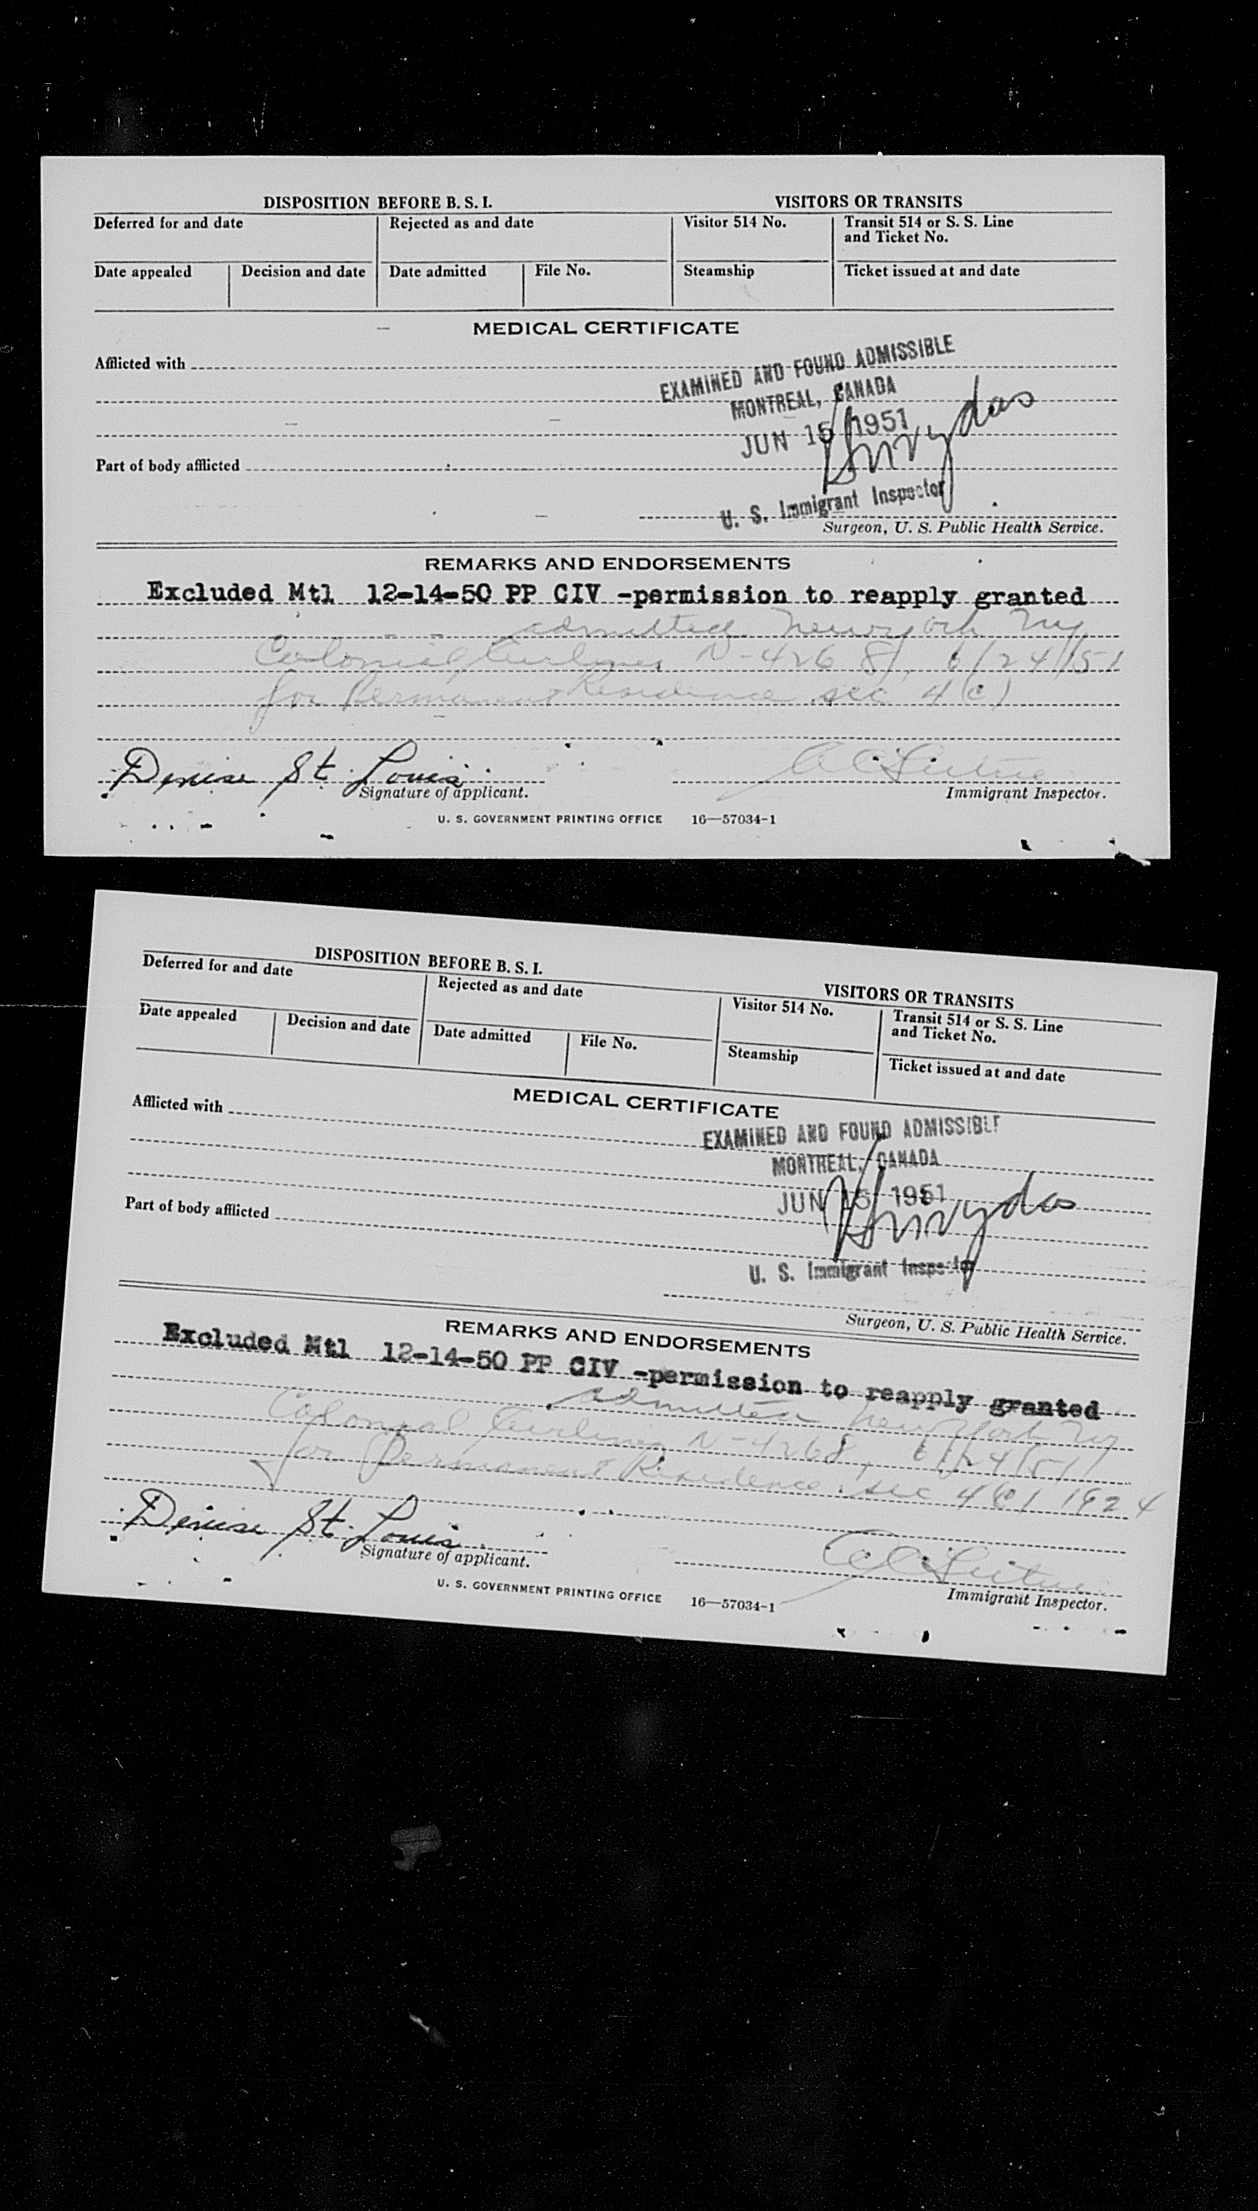 DISPOSITION BEFORE B. S. I.
VISITORS OR TRANSITS
Deferred for and date
Rejected as and date
Visitor 514 No.
Transit 514 or S. S. Line
and Ticket No.
Date appealed
Decision and date
Date admitted
File No.
Steamship
Ticket issued at and date
MEDICAL CERTIFICATE
Afflicted with
EXAMINED AND FOUND ADMISSIBLE
MONTREAL, CANADA
JUN 15 1951
Part of body afflicted
U. S. Immigrant Inspector
Surgeon, U. S. Public Health Service.
REMARKS AND ENDORSEMENTS
Excluded Mtl 12-14-50 PP CIV -permission to reapply granted
admitted New York Ny
Colonial Airlines N-4268, 6/24/51
for Permanent Residence sec 4(c)
Denise St. Louis
Signature of applicant.
Immigrant Inspector.
U. S. GOVERNMENT PRINTING OFFICE 16—57034-1
DISPOSITION BEFORE B. S. I.
VISITORS OR TRANSITS
Deferred for and date
Rejected as and date
Visitor 514 No.
Transit 514 or S. S. Line
and Ticket No.
Date appealed
Decision and date
Date admitted
File No.
Steamship
Ticket issued at and date
MEDICAL CERTIFICATE
Afflicted with
EXAMINED AND FOUND ADMISSIBLE
MONTREAL, CANADA
JUN 15 1951
Part of body afflicted
U. S. Immigrant Inspector
Surgeon, U. S. Public Health Service.
REMARKS AND ENDORSEMENTS
Excluded Mtl 12-14-50 PP CIV -permission to reapply granted
admitted New York Ny
Colonial Airlines N-4268, 6/24/51
for Permanent Residence sec 4(c) 1924
Denise St. Louis
Signature of applicant.
Immigrant Inspector.
U. S. GOVERNMENT PRINTING OFFICE 16—57034-1